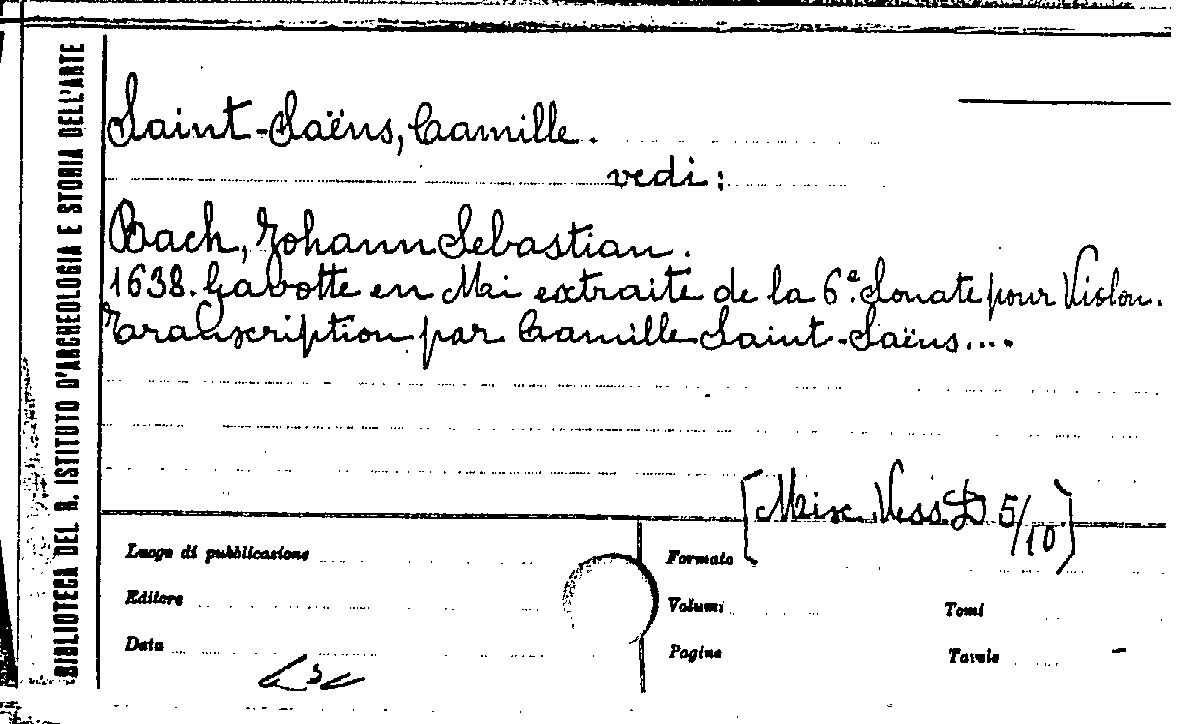 BIBLIOTECA DEL R. ISTITUTO D'ARCHEOLOGIA E STORIA DELL'ARTE
Saint-Saëns, Camille.
vedi:
Bach, Johann Sebastian.
1638. Gavotte en Mi extraite de la 6ª. Sonate pour Violon.
Transcription par Camille Saint-Saëns....
[Misc. Vess. D 5/10]
Luogo di pubblicazione
Formato
Editore
Volumi
Tomi
Data
Pagine
Tavole